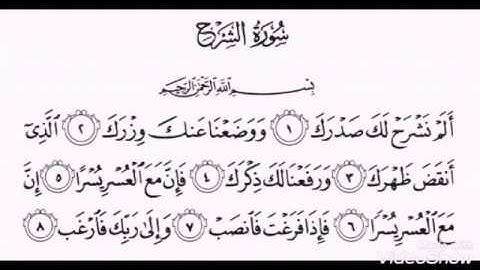 سُورَةُ الشَّرْحِ
بِسْمِ اللَّهِ الرَّحْمَٰنِ الرَّحِيمِ
أَلَمْ نَشْرَحْ لَكَ صَدْرَكَ ١ وَوَضَعْنَا عَنكَ وِزْرَكَ ٢ الَّذِي
أَنقَضَ ظَهْرَكَ ٣ وَرَفَعْنَا لَكَ ذِكْرَكَ ٤ فَإِنَّ مَعَ الْعُسْرِ يُسْرًا ٥ إِنَّ
مَعَ الْعُسْرِ يُسْرًا ٦ فَإِذَا فَرَغْتَ فَانصَبْ ٧ وَإِلَىٰ رَبِّكَ فَارْغَب ٨
VideoShow